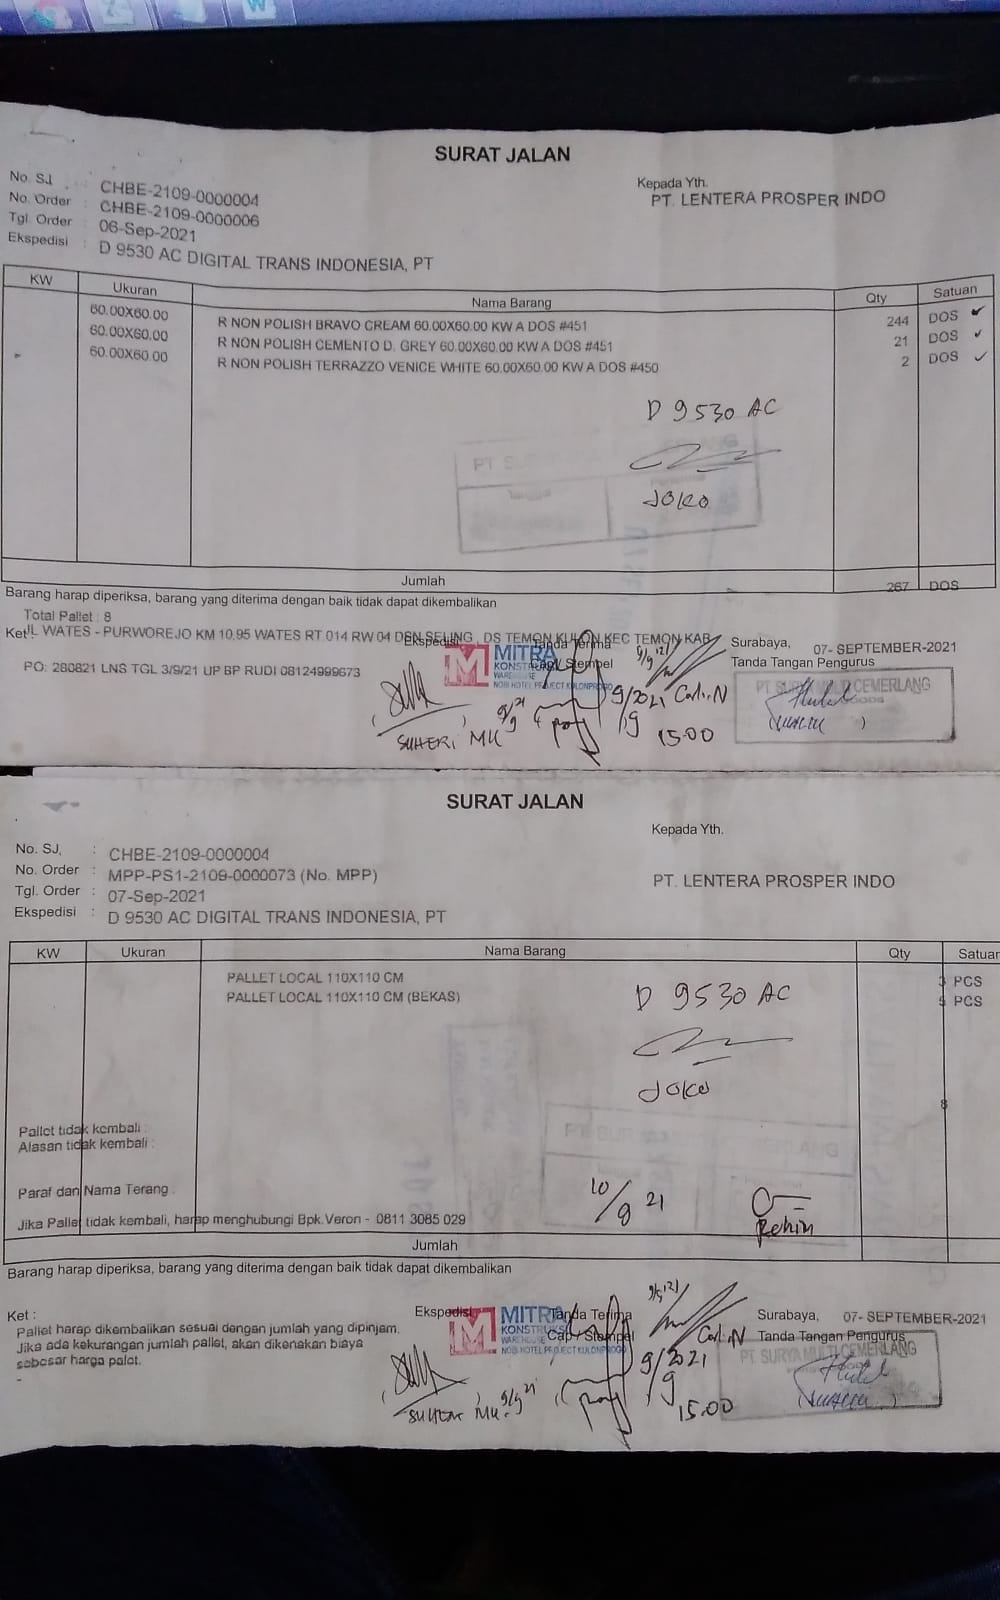 SURAT JALAN
No. SJ : CHBE-2109-0000004
No. Order : CHBE-2109-0000006
Tgl. Order : 06-Sep-2021
Ekspedisi : D 9530 AC DIGITAL TRANS INDONESIA, PT
Kepada Yth.
PT. LENTERA PROSPER INDO
KW Ukuran Nama Barang Qty Satuan
60.00X60.00 R NON POLISH BRAVO CREAM 60.00X60.00 KW A DOS #451 244 DOS
60.00X60.00 R NON POLISH CEMENTO D. GREY 60.00X60.00 KW A DOS #451 21 DOS
60.00X60.00 R NON POLISH TERRAZZO VENICE WHITE 60.00X60.00 KW A DOS #450 2 DOS
D 9530 AC
PT SU
JOKO
Jumlah 267 DOS
Barang harap diperiksa, barang yang diterima dengan baik tidak dapat dikembalikan
Total Pallet : 8
Ket JL WATES - PURWOREJO KM 10,95 WATES RT 014 RW 04 DSN SELING , DS TEMON KULON KEC TEMON KAB
PO: 280821 LNS TGL 3/9/21 UP BP RUDI 08124999673
Ekspedisi
Tanda Terima
Cap / Stempel
MITRA
KONSTRUKSI
WAREHOUSE
NOBI HOTEL PROJECT KULONPROGO
Surabaya, 07- SEPTEMBER-2021
Tanda Tangan Pengurus
PT SURYA MULTI CEMERLANG
9/9 '21
SUHERI MK 9/9 21
9/2021
/9
15.00
SURAT JALAN
No. SJ, : CHBE-2109-0000004
No. Order : MPP-PS1-2109-0000073 (No. MPP)
Tgl. Order : 07-Sep-2021
Ekspedisi : D 9530 AC DIGITAL TRANS INDONESIA, PT
Kepada Yth.
PT. LENTERA PROSPER INDO
KW Ukuran Nama Barang Qty Satuan
PALLET LOCAL 110X110 CM 3 PCS
PALLET LOCAL 110X110 CM (BEKAS) 5 PCS
D 9530 AC
JOKO
8
Pallet tidak kembali :
Alasan tidak kembali :
Paraf dan Nama Terang :
10/9 21
Jika Pallet tidak kembali, harap menghubungi Bpk.Veron - 0811 3085 029
Jumlah
Barang harap diperiksa, barang yang diterima dengan baik tidak dapat dikembalikan
Ket :
Pallet harap dikembalikan sesuai dengan jumlah yang dipinjam.
Jika ada kekurangan jumlah pallet, akan dikenakan biaya
sebesar harga palet.
-
Ekspedisi
Tanda Terima
Cap / Stempel
MITRA
KONSTRUKSI
WAREHOUSE
NOBI HOTEL PROJECT KULONPROGO
Surabaya, 07- SEPTEMBER-2021
Tanda Tangan Pengurus
PT SURYA MULTI CEMERLANG
9/9 '21
SUHERI MK. 9/9 21
9/2021
/9
15.00